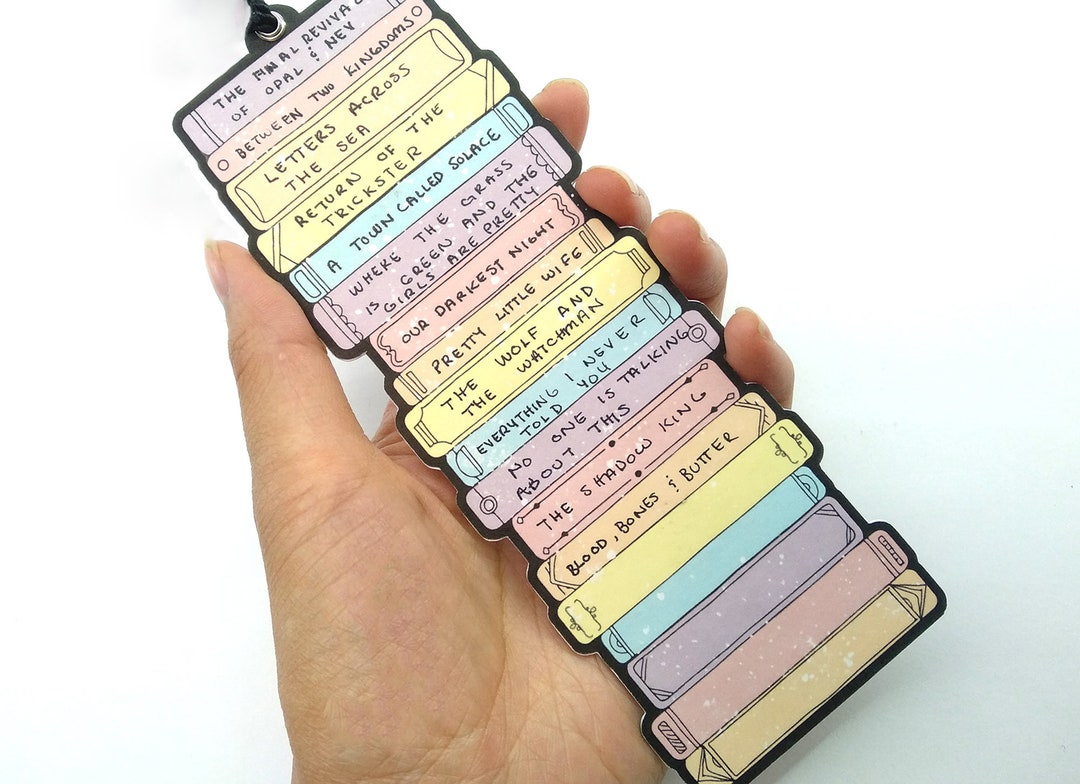 THE FINAL REVIVAL
OF OPAL & NEV
BETWEEN TWO KINGDOMS
LETTERS ACROSS
THE SEA
RETURN OF THE
TRICKSTER
A TOWN CALLED SOLACE
WHERE THE GRASS
IS GREEN AND THE
GIRLS ARE PRETTY
OUR DARKEST NIGHT
PRETTY LITTLE WIFE
THE WOLF AND
THE WATCHMAN
EVERYTHING I NEVER
TOLD YOU
NO ONE IS TALKING
ABOUT THIS
THE SHADOW KING
BLOOD, BONES & BUTTER